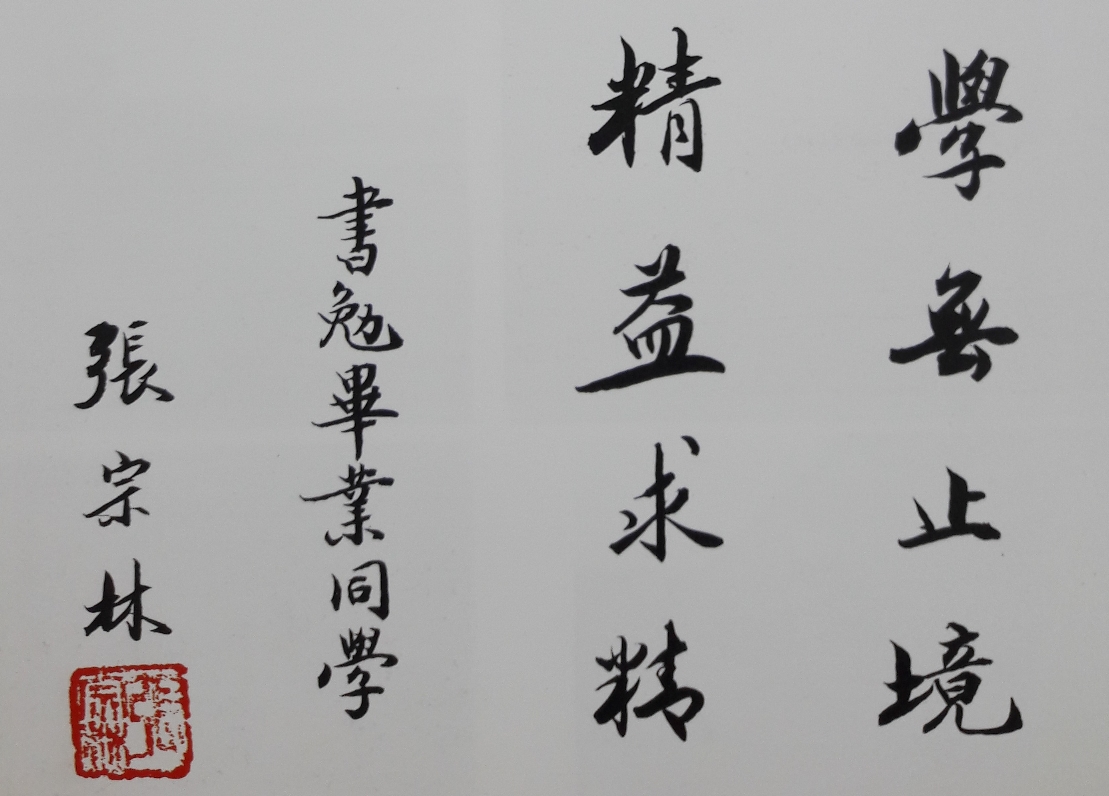 學無止境
精益求精
書勉畢業同學
張宗林
張宗林